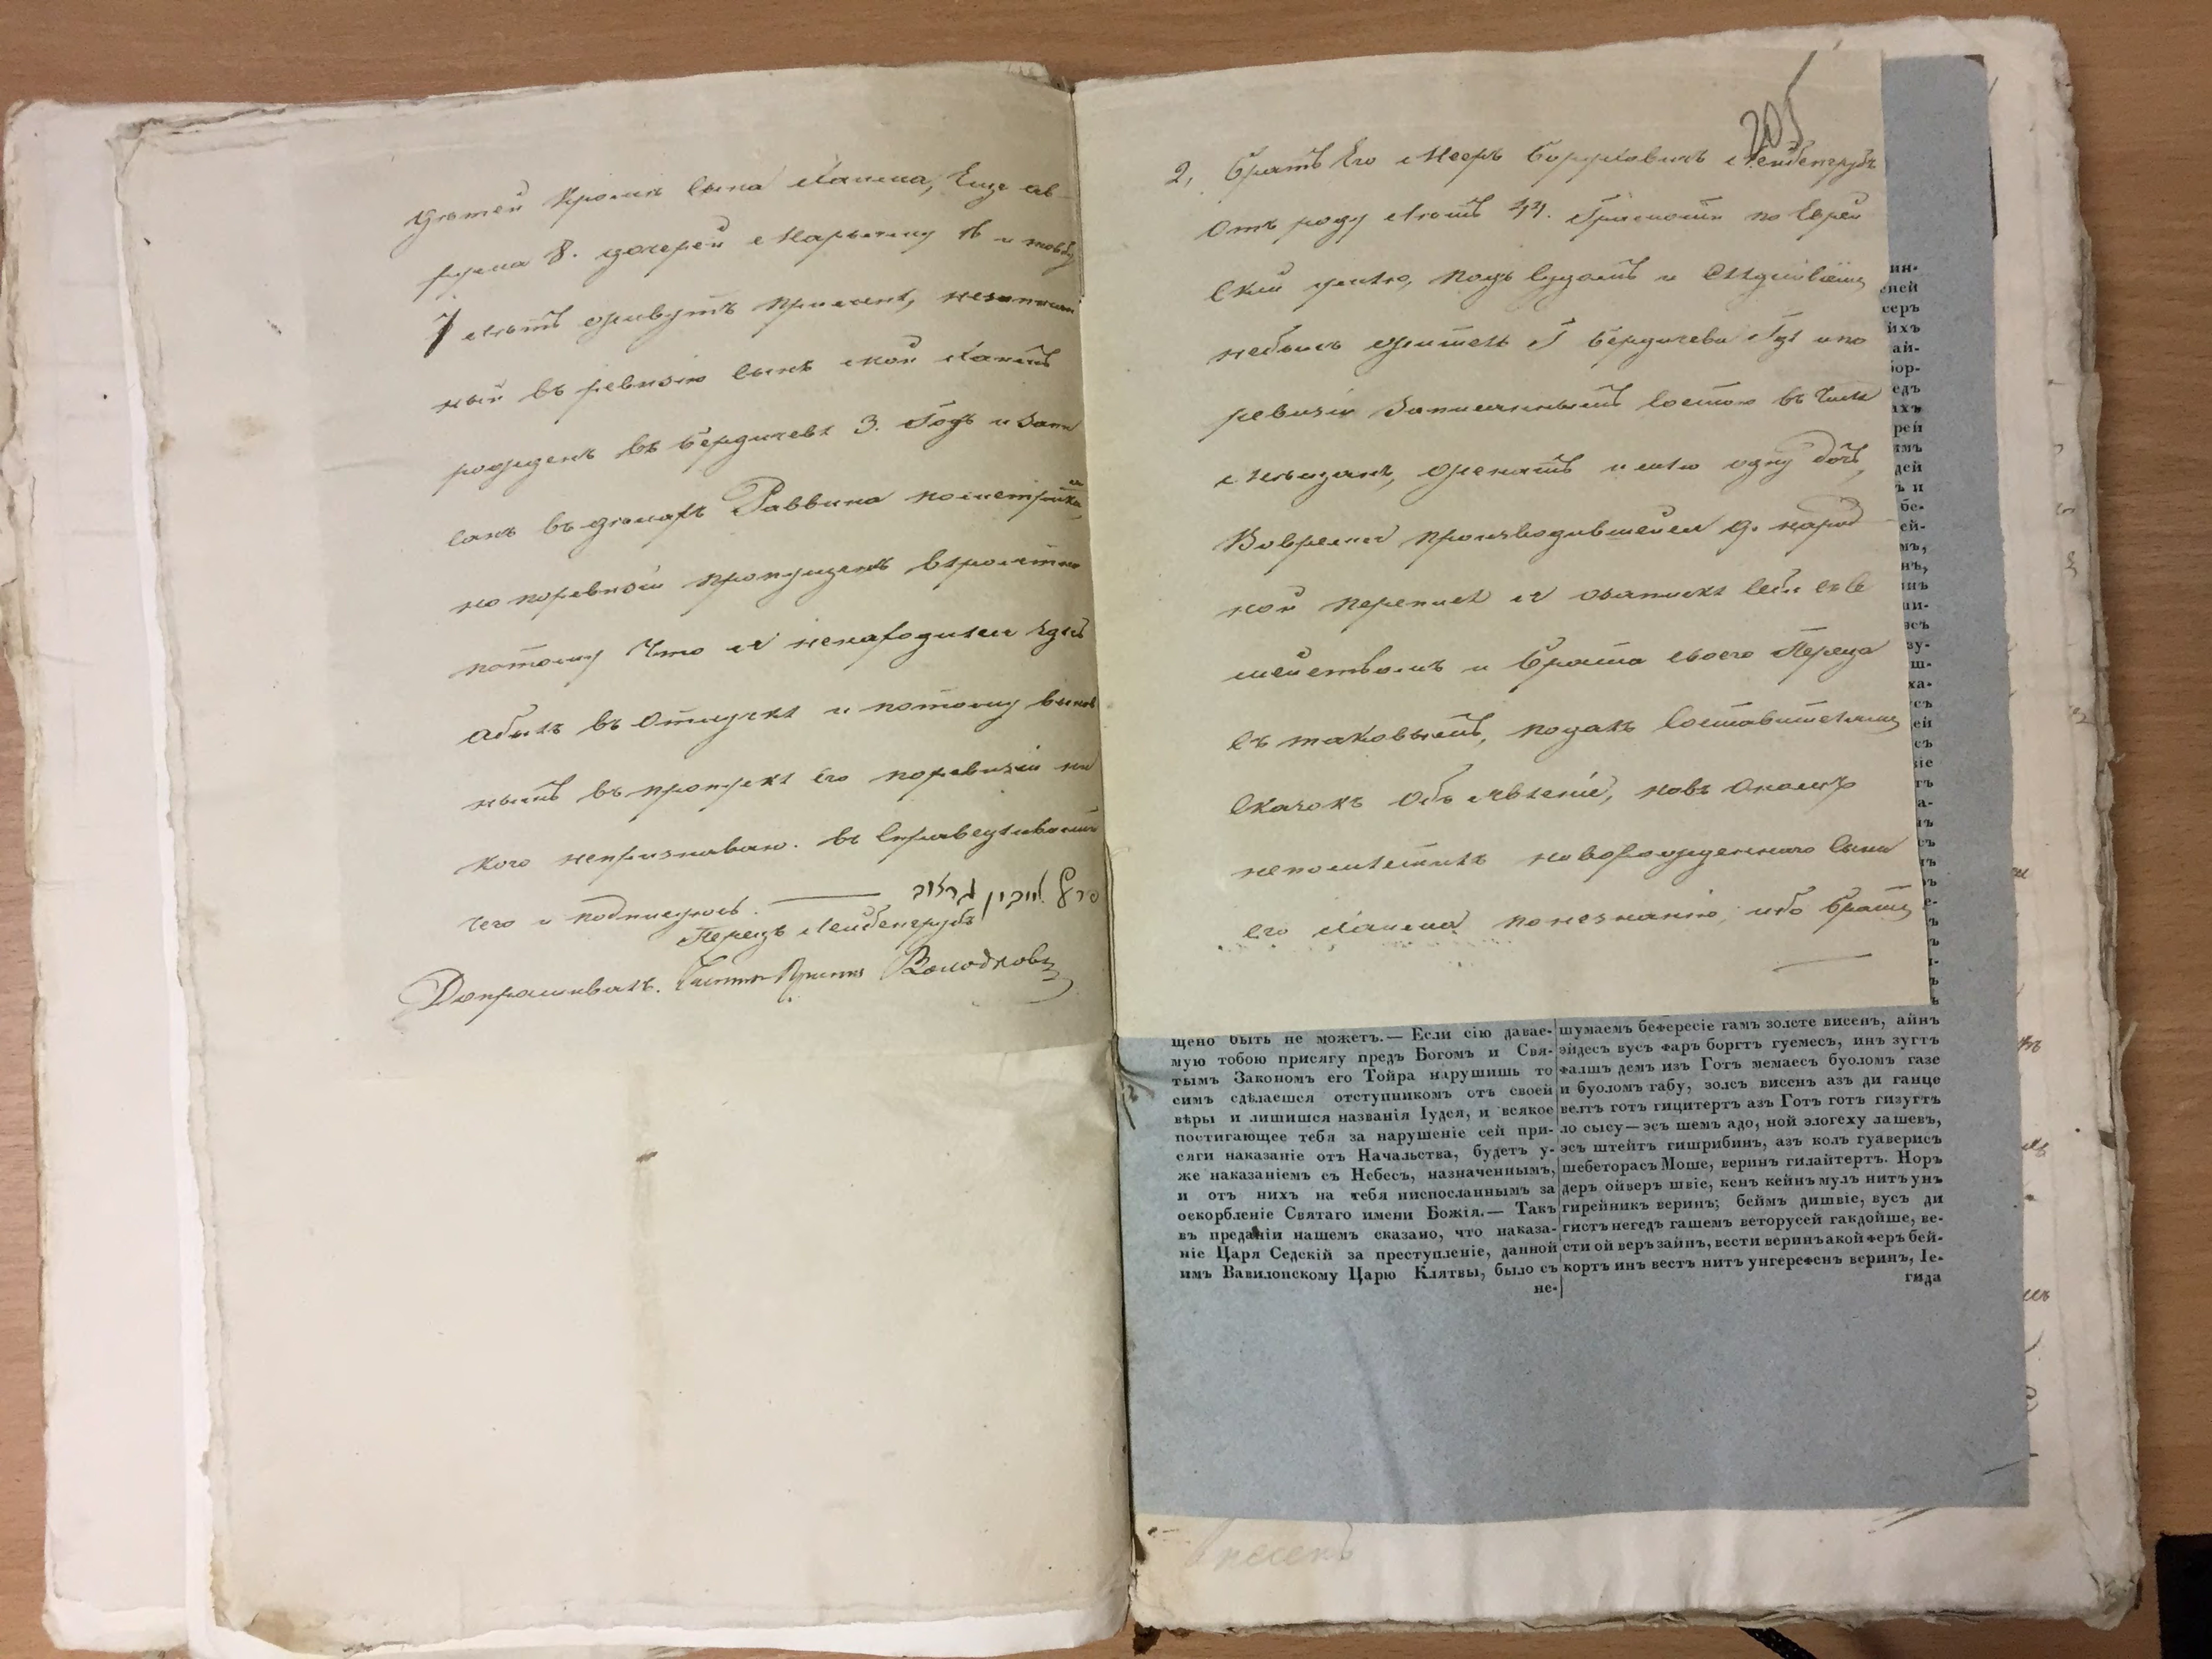 дѣтей кромѣ сына Хаима, Еще Ав-
рума 8. дочерей Марьяму 16 и Товбу
7 лѣтъ живутъ при мнѣ, незаписан
ный въ ревизію сынъ мой Хаимъ
рожденъ въ Бердичевѣ 3. Годъ и запи
санъ въ дѣлахъ Раввина пометрикѣ,
но поревизіи пропущенъ вѣроятно
потому Что я ненаходился здѣсь
абылъ въ Отлучкѣ и потому винов
нымъ въ пропускѣ Его поревизіи ни
кого непризнаваю. въ Справедливости
чего и подписуюсь.
Перецъ Лейбенгрубъ
Допрашивалъ.
205
2, Братъ Его Мееръ Боруховичъ Лейбенгрубъ
Отъ роду лѣтъ 44. Грамотѣ по Еврей
Ски умѣю, подъ Судомъ и Слѣдствіемъ
небылъ житель Г Бердичева Гдѣ и по
ревизіи Записаннымъ Состою въ Числѣ
мѣщанъ, женатъ имѣю одну дочь,
Вовремя производившейся 9. народ
ной переписи я озапискѣ Себя съ Се
мействомъ и брата своего Переца
Съ таковымъ, подалъ Составителямъ
Сказокъ Объявленіе, новъ Ономъ
непомѣстилъ новорожденнаго Сына
его Хаима понезнанію, ибо братъ
ин-
сней
серъ
йхъ
ай-
бор-
едъ
ахъ
рей
амъ
дей
ъ и
бе-
ей-
мъ,
нъ,
инъ
ши-
эсъ
зу-
ш-
ха-
съ
ей
съ
ніе
тъ
а-
щено быть не можетъ.— Если сію давае-
мую тобою присягу предъ Богомъ и Свя-
тымъ Закономъ его Тойра нарушишь то
симъ сдѣлаешся отступникомъ отъ своей
вѣры и лишишся названія Іудея, и всякое
постигающее тебя за нарушеніе сей при-
сяги наказаніе отъ Начальства, будетъ у-
же наказаніемъ съ Небесъ, назначеннымъ,
и отъ нихъ на тебя ниспосланнымъ за
оскорбленіе Святаго имени Божія.— Такъ
въ преданіи нашемъ сказано, что наказа-
ніе Царя Седскій за преступленіе, данной
имъ Вавилонскому Царю Клятвы, было съ
не-
шумаемъ беѳересіе гамъ золете висенъ, айнъ
эйдесъ вусъ ѳаръ боргтъ гуемесъ, инъ зугтъ
ѳалшъ демъ изъ Готъ мемаесъ буоломъ газе
и буоломъ габу, золсъ висенъ азъ ди ганце
велтъ готъ гицитертъ азъ Готъ готъ гизугтъ
ло сысу—эсъ шемъ адо, ной элогеху лашевъ,
эсъ штейтъ гишрибинъ, азъ колъ гуаверисъ
шебеторасъ Моше, веринъ гилайтертъ. Норъ
деръ ойверъ швіе, кенъ кейнъ мулъ нитъ унъ
гирейникъ веринъ; беймъ дишвіе, вусъ ди
гистъ негедъ гашемъ веторусей гакдойше, ве-
сти ой веръ зайнъ, вести веринъ акой ѳеръ бей-
кортъ инъ вестъ нитъ унгереѳенъ веринъ, Іе-
гида